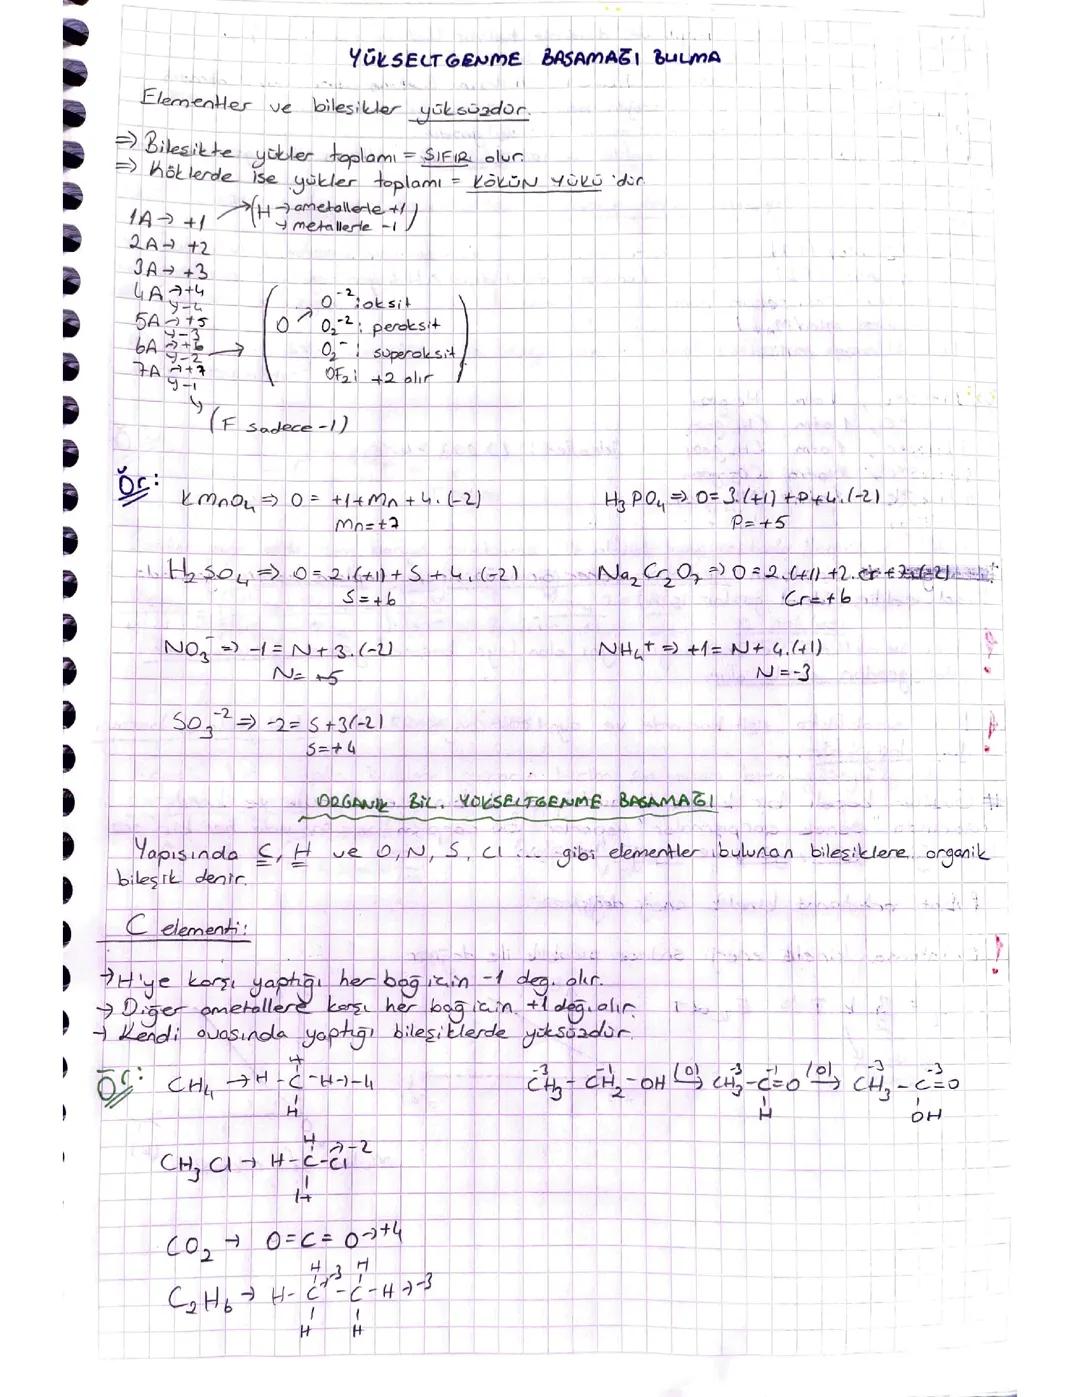 YÜKSELTGENME BASAMAĞI BULMA
Elementler ve bileşikler yüksüzdür.
⇒ Bileşikte yükler toplamı = SIFIR olur.
⇒ Köklerde ise yükler toplamı = KÖKÜN YÜKÜ'dür.
1A → +1 → (H → ametallerle +1
→ metallerle -1)
2A → +2
3A → +3
4A → +4
y-4
5A → +5
y-3
6A → +6
y-2 →
7A → +7
y-1
O → O⁻²: oksit
O₂⁻²: peroksit
O₂⁻: süperoksit
OF₂: +2 alır
(F sadece -1)
Ör:
KMnO₄ ⇒ 0 = +1+Mn+4.(-2)
Mn=+7
H₃PO₄ ⇒ 0=3.(+1)+P+4.(-2)
P=+5
H₂SO₄ ⇒ 0=2.(+1)+S+4.(-2)
S=+6
Na₂Cr₂O₇ ⇒ 0=2.(+1)+2.Cr+7.(-2)
Cr=+6
NO₃⁻ ⇒ -1=N+3.(-2)
N= +5
NH₄⁺ ⇒ +1=N+4.(+1)
N=-3
SO₃⁻² ⇒ -2=S+3(-2)
S=+4
ORGANİK BİL. YÜKSELTGENME BASAMAĞI
Yapısında C, H ve O, N, S, Cl ... gibi elementler bulunan bileşiklere organik
bileşik denir.
C elementi:
→ H'ye karşı yaptığı her bağ için -1 değ. alır.
→ Diğer ametallere karşı her bağ için +1 değ. alır.
→ Kendi arasında yaptığı bileşiklerde yüksüzdür.
Ör:
H
CH₄ → H-C-H → -4
H
-3 -1 -3 -1 -3 -3
CH₃-CH₂-OH (O)→ CH₃-C=O (O)→ CH₃-C=O
H OH
H
CH₃Cl → H-C-Cl → -2
H
CO₂ → O=C=O → +4
H -3 H
C₂H₆ → H-C-C-H → -3
H H